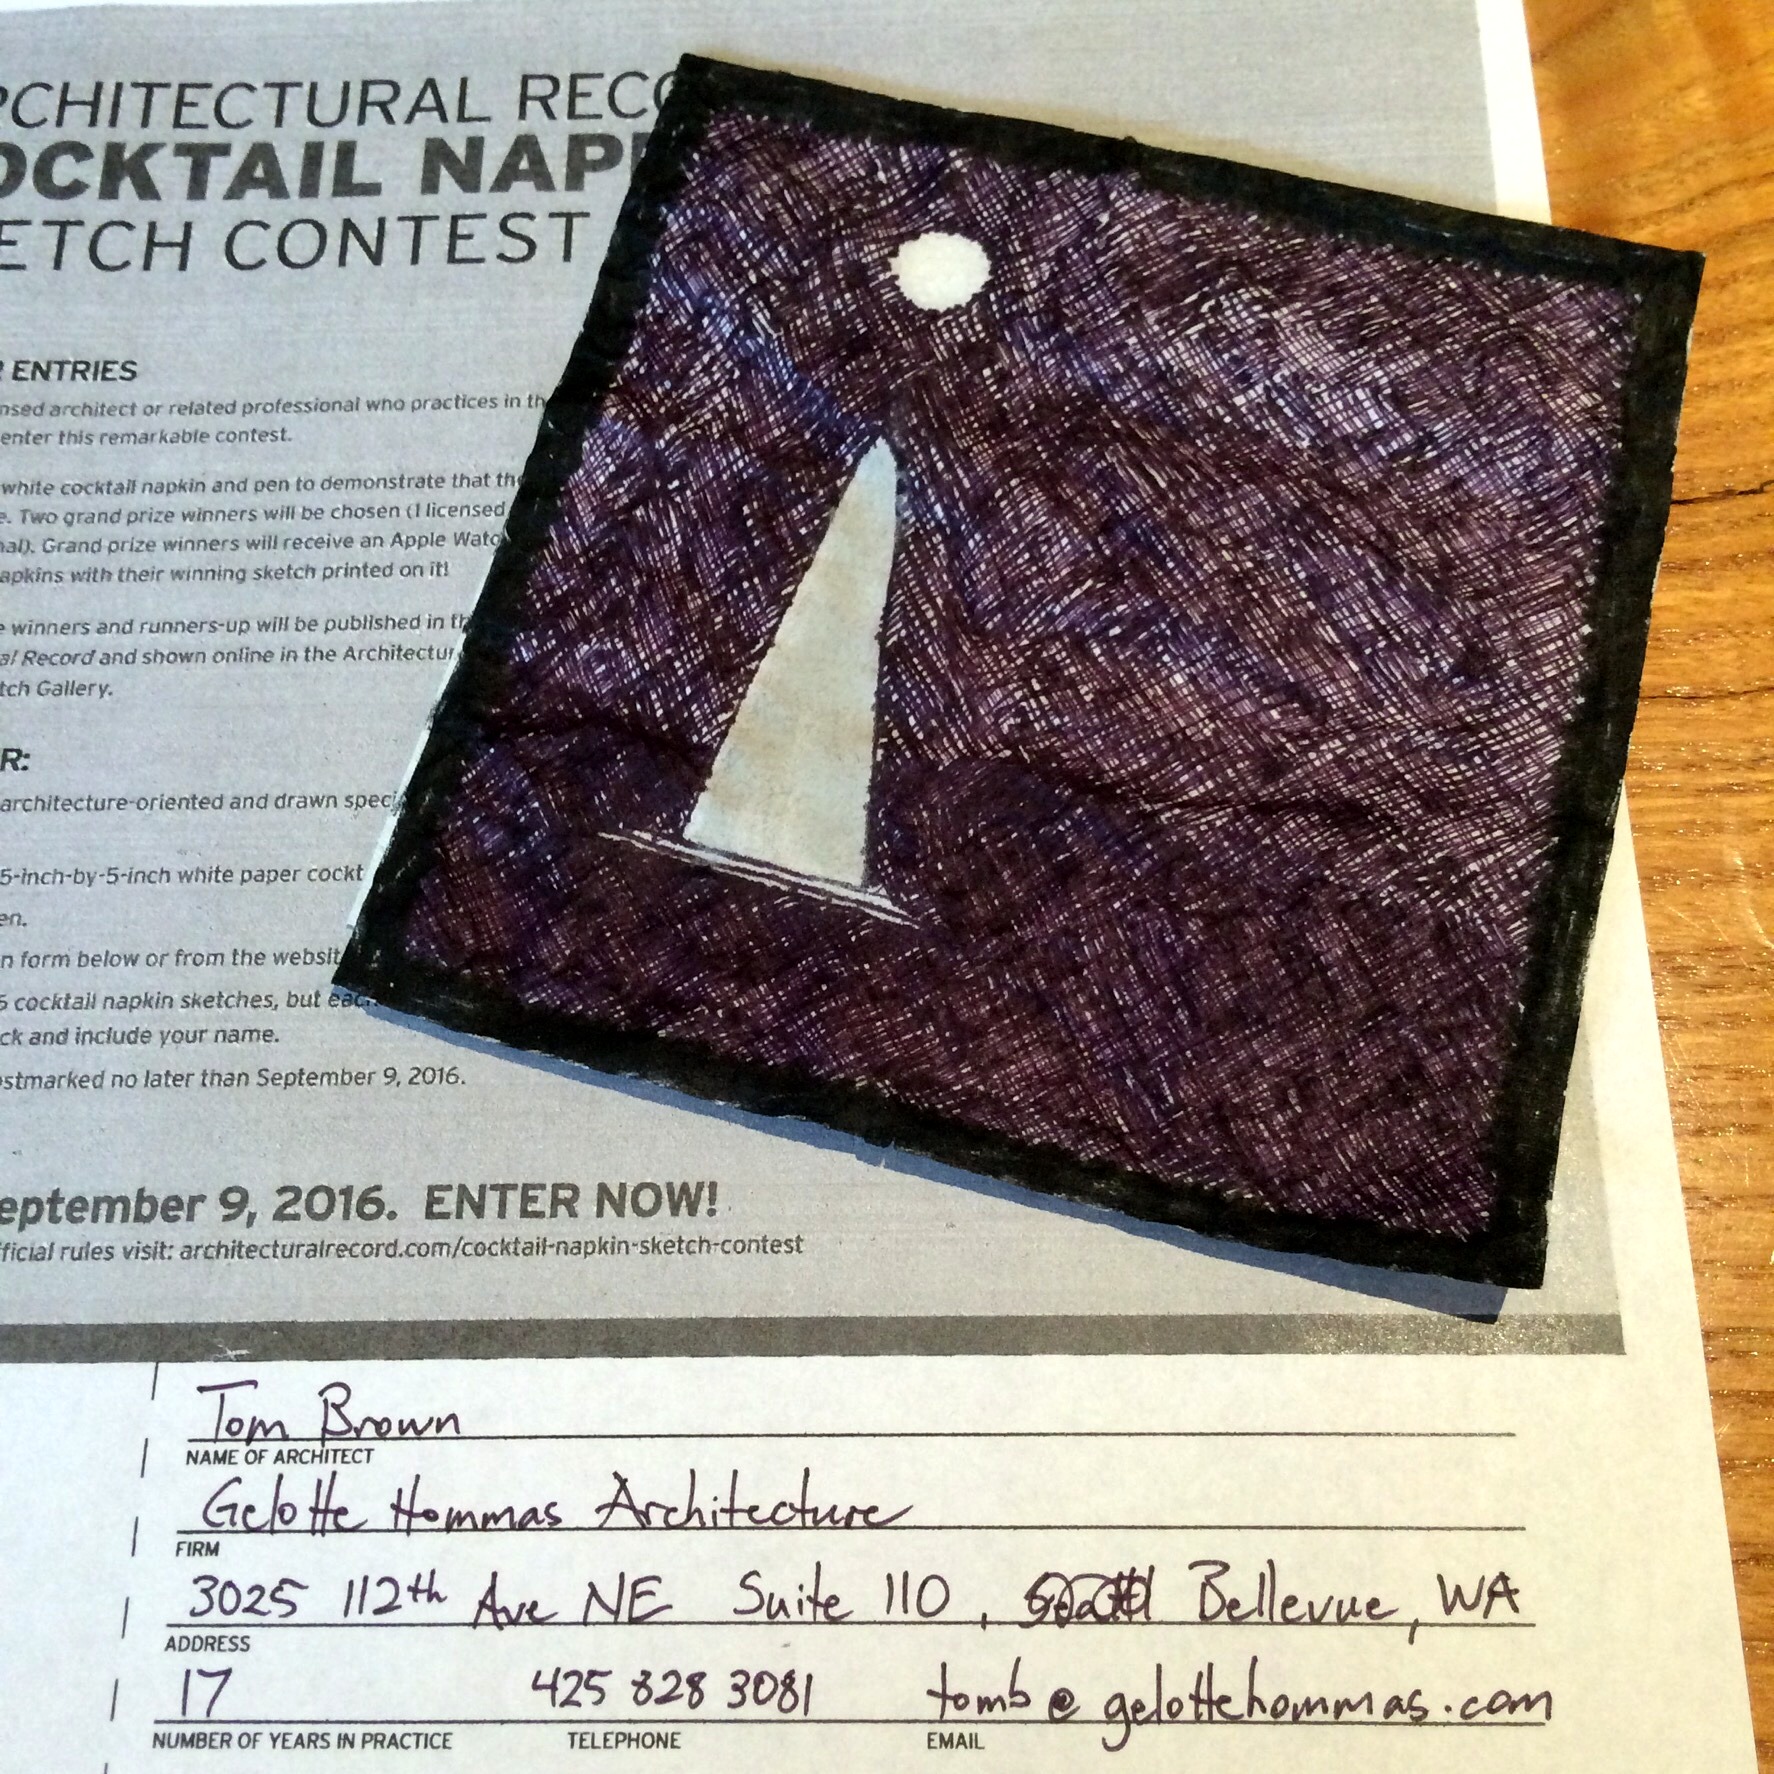 RCHITECTURAL RECO
OCKTAIL NAP
ETCH CONTEST
R ENTRIES
nsed architect or related professional who practices in th
enter this remarkable contest.
white cocktail napkin and pen to demonstrate that th
e. Two grand prize winners will be chosen (1 licensed
nal). Grand prize winners will receive an Apple Watc
apkins with their winning sketch printed on it!
e winners and runners-up will be published in th
al Record and shown online in the Architectur
tch Gallery.
R:
architecture-oriented and drawn speci
5-inch-by-5-inch white paper cockt
en.
n form below or from the websit
6 cocktail napkin sketches, but each
ck and include your name.
ostmarked no later than September 9, 2016.
eptember 9, 2016. ENTER NOW!
fficial rules visit: architecturalrecord.com/cocktail-napkin-sketch-contest
Tom Brown
NAME OF ARCHITECT
Gelotte Hommas Architecture
FIRM
3025 112th Ave NE Suite 110, Bellevue, WA
ADDRESS
17 425 828 3081 tomb@gelottehommas.com
NUMBER OF YEARS IN PRACTICE TELEPHONE EMAIL